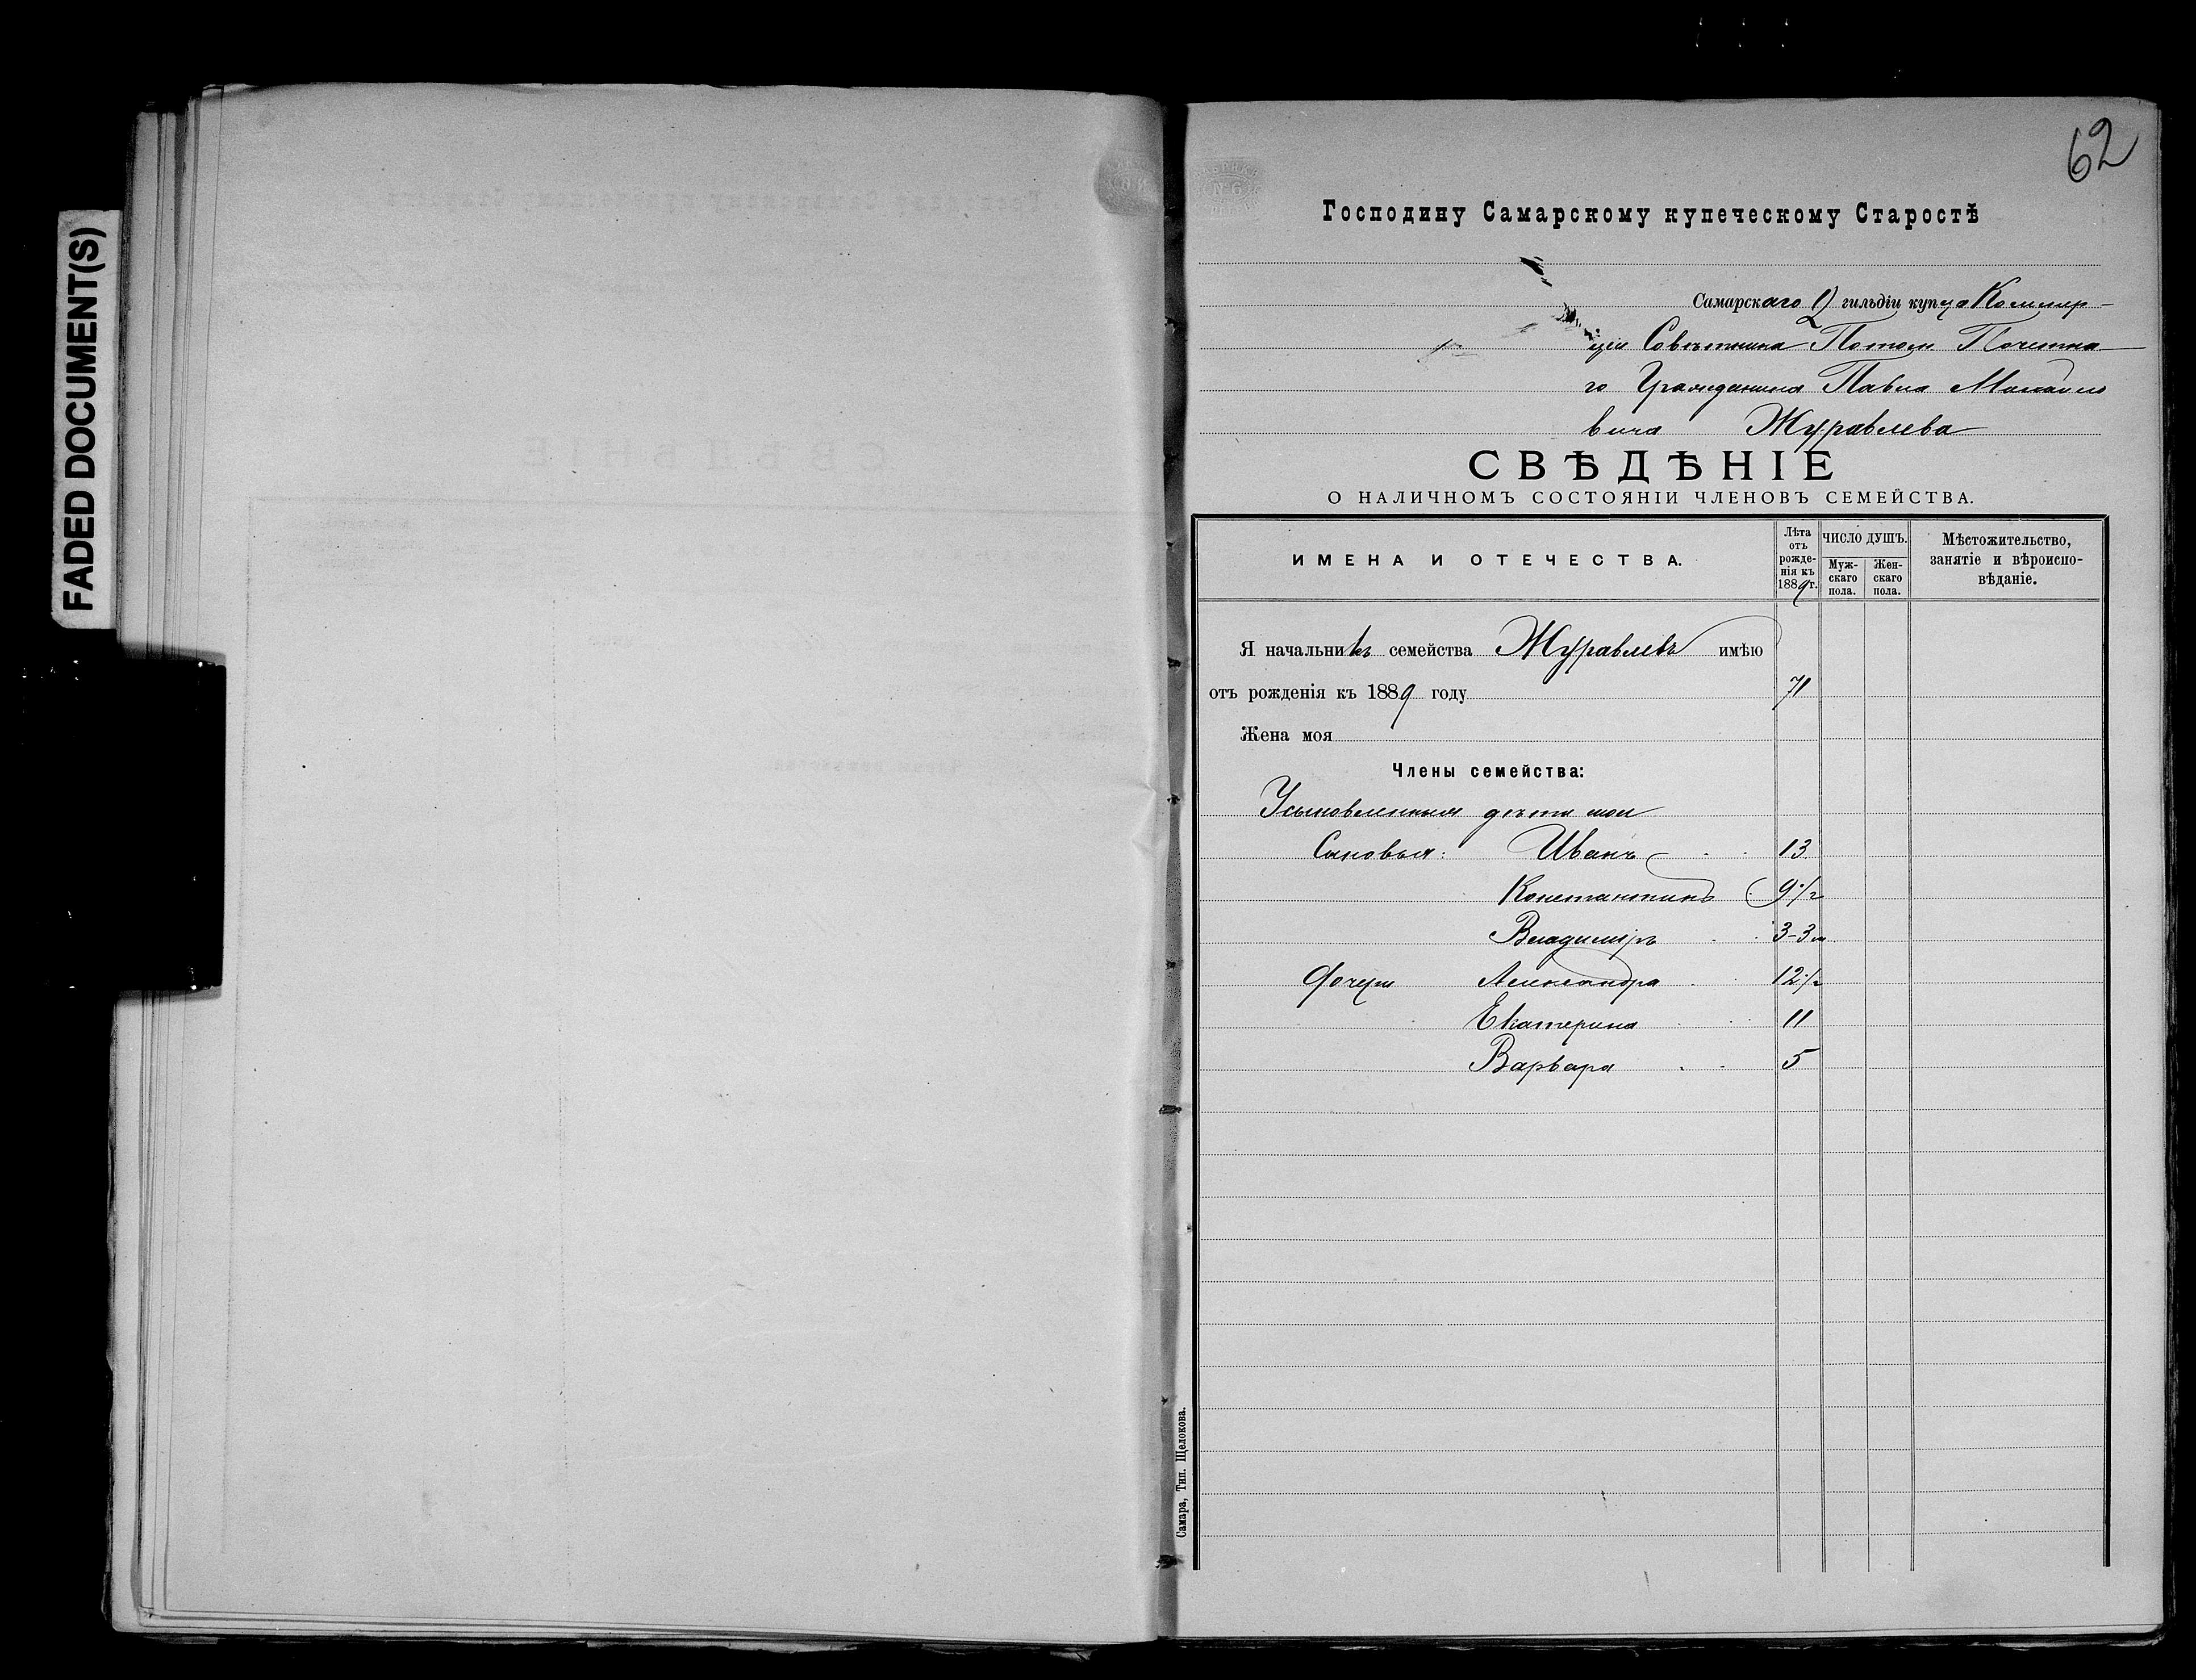 FADED DOCUMENT(S)
62
Господину Самарскому купеческому Старостѣ
Самарскаго гильдіи купца Коммер-
ціи Совѣтника Потом Почетна
го Гражданина Павла Михайло
вича Журавлева
СВѢДѢНІЕ
О НАЛИЧНОМЪ СОСТОЯНІИ ЧЛЕНОВЪ СЕМЕЙСТВА.
ИМЕНА И ОТЕЧЕСТВА.
Лѣта отъ рожде-нія къ 1889 г.
ЧИСЛО ДУШЪ.
Муж-скаго пола.
Жен-скаго пола.
Мѣстожительство, занятіе и вѣроиспо-вѣданіе.
Я начальникъ семейства Журавлевъ имѣю
отъ рожденія къ 1889 году 71
Жена моя
Члены семейства:
Усыновленныя дѣти мои
Сыновья: Иванъ 13
Константинъ 9 1/2
Владиміръ 3-3 м
дочери Александра 12 1/2
Екатерина 11
Варвара 5
Самара, Тип. Щелокова.